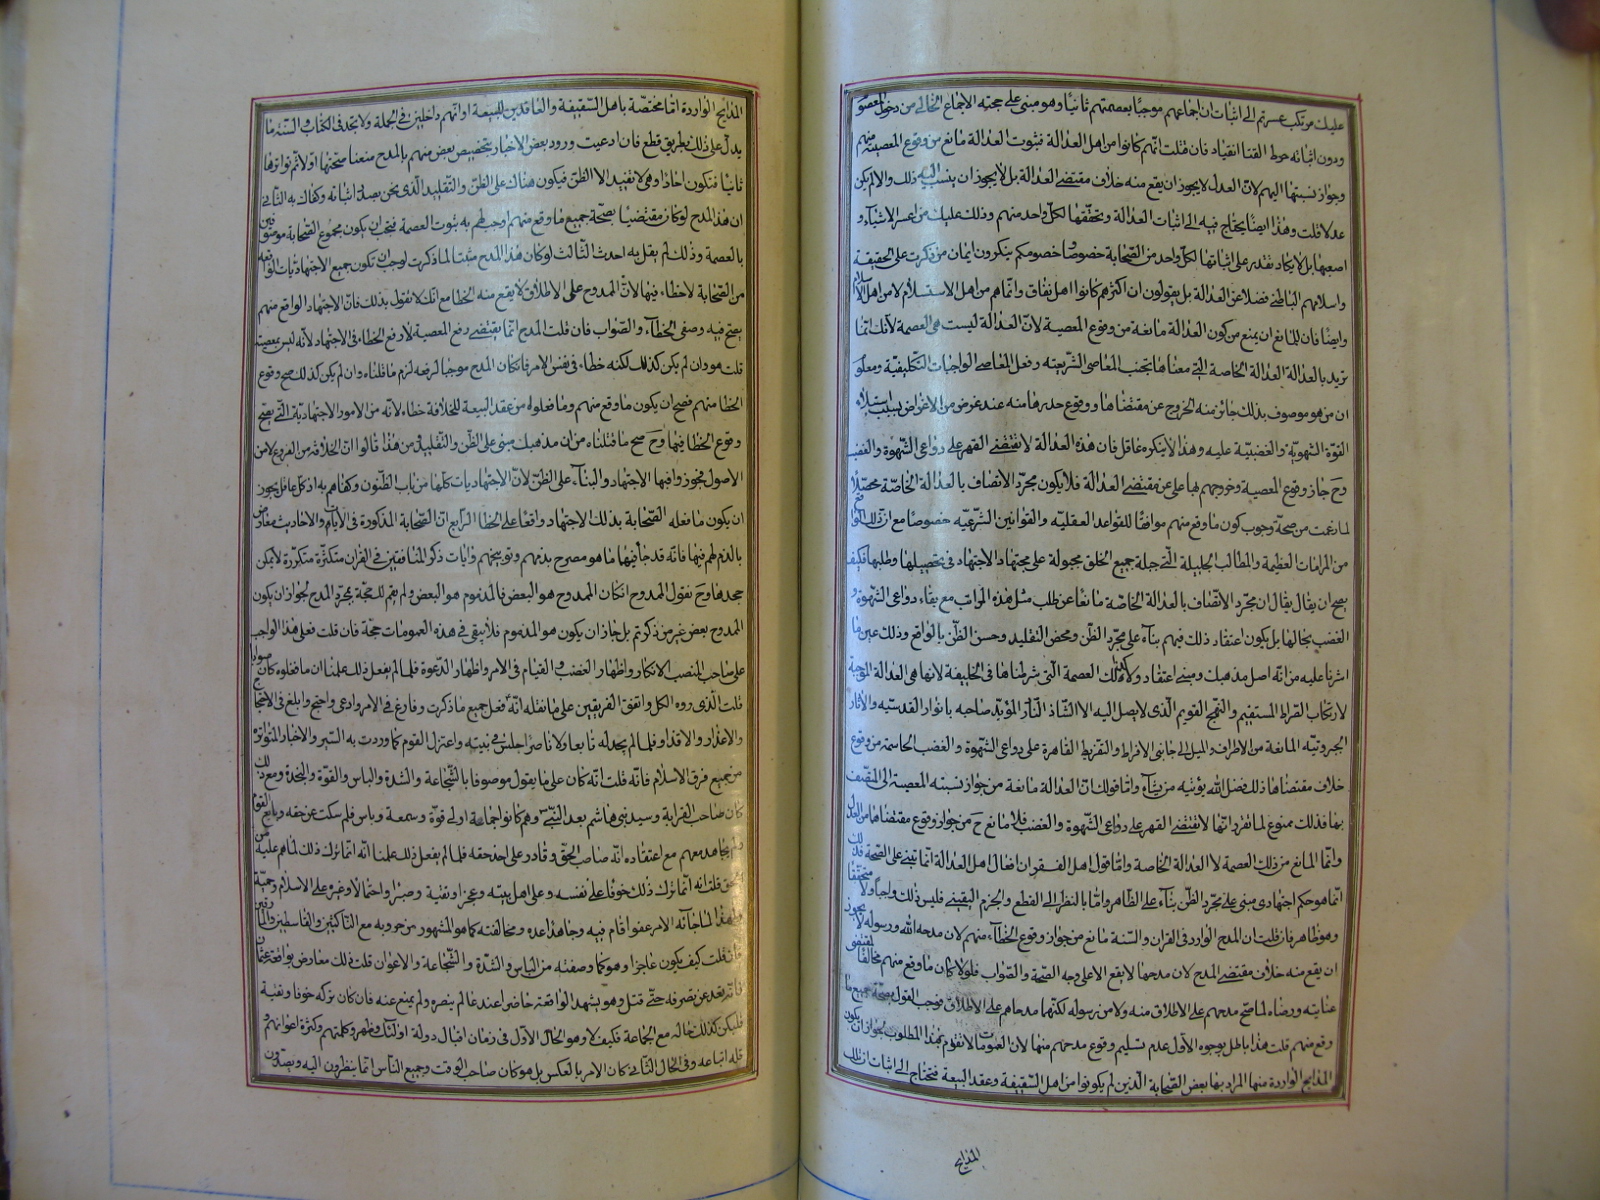 عليك مرتكب عسرتم الى اثبات ان اجماعهم موجبا بعصمتهم ثانيا وهو مبنى على حجته الاجماع الخالى من دخول المعصوم
ودون اثباته خرط القتاد انقياد فان قلت انهم كانوا من اهل العدالة فثبوت العدالة مانع من وقوع المعصية منهم
وجواز نسبتها اليهم لان العدل لا يجوز ان يقع منه خلاف مقتضى العدالة بل لا يجوز ان ينسب اليه ذلك والا لم يكن
عدلا قلت وهذا ايضا يحتاج فيه الى اثبات العدالة وتحققها لكل واحد منهم وذلك عليك من اعسر الاشياء و
اصعبها بل لا يكاد تقدر على اثباتها لكل واحد من الصحابة خصوصا وخصومكم ينكرون ايمان من ذكرت على الحقيقة
واسلامهم الباطنى فضلا عن العدالة بل يقولون ان اكثرهم كانوا اهل نفاق وانما هم من اهل الاستسلام لا من اهل الاسلام
وايضا فان للمانع ان يمنع من كون العدالة مانعة من وقوع المعصية لان العدالة ليست هى العصمة لانك انما
تريد بالعدالة العدالة الخاصة التى معناها تجنب المعاصى الشرعيته وفعل الواجبات التكليفية ومعلوم
ان من هو موصوف بذلك جائز منه الخروج عن مقتضاها ووقوع ضدها منه عند غرض من الاغراض بسبب استيلاء
القوة الشهوية والغضبية عليه وهذا لا ينكره عاقل فان هذه العدالة لا تقتضى القهر على دواعى الشهوة والغضب
وح جاز وقوع المعصية وخروجهم بها على عن مقتضى العدالة فلا يكون مجرد الاتصاف بالعدالة الخاصة محصلا
لما زعمت من صحة وجوب كون ما وقع منهم موافقا للقواعد العقليه والقوانين الشرعيه خصوصا مع ان ذلك
من المرامات العظيمة والمطالب الجليلة التى جلة جميع الخلق مجبولة على الاجتهاد فى تحصيلها وطلبها فكيف
يصح ان يقال ان مجرد الاتصاف بالعدالة الخاصة مانعا عن طلب مثل هذه المراتب مع بقاء دواعى الشهوة و
الغضب بحالها بل يكون اعتقاد ذلك فيهم بناء على مجرد الظن ومحض التقليد وحسن الظن بالواقع وذلك عين ما
اشرنا عليه من انه اصل مذهبك ومبنى اعتقادك ولا كذلك العصمة التى شرطناها فى الخليفة لانها هى العدالة الموجبة
لارتكاب الصراط المستقيم والنهج القويم الذى لا يصل اليه الا الشاذ النادر المؤيد صاحبه بانوار القدسيه والاثار
الجبروتيه المانعة من الاطراف والميل الى جانبى الافراط والتفريط القاهرة على دواعى الشهوة والغضب الحاسمة من وقوع
خلاف مقتضاها ذلك فضل الله يؤتيه من يشاء واما قولك ان العدالة مانعة من جواز نسبته المعصية الى المتصف
بها فذلك ممنوع لما تقرر انها لا تقتضى القهر على دواعى الشهوة والغضب فلا مانع ح من جواز وقوع مقتضاها من العدل
وانما المانع من ذلك العصمة لا العدالة الخاصة واما قول اهل الفقه ان افعال اهل العدالة انما تبتنى على الصحة فذلك
انما هو حكم اجتهادى مبنى على مجرد الظن بناء على الظاهر واما بالنظر الى القطع والجزم اليقينى فليس ذلك واجبا ولا متحققا
وهو ظاهر فان قلت ان المدح الوارد فى القران والسنة مانع من جواز وقوع الخطاء منهم لان مدحه الله ورسوله لا يجوز
ان يقع منه خلاف مقتضى المدح لان مدحها لا يقع الا على وجه الصحة والصواب فلو كان ما وقع منهم مخالفا لمقتضى
عنايته ورضاه لما صح مدحهم على الاطلاق منه ولا من رسوله لكنهما مدحاهم على الاطلاق فوجب القول بصحة جميع ما
وقع منهم قلت هذا باطل بوجوه الاول عدم تسليم وقوع مدحهم منها لان العمومات لا تقوم بهذا المطلوب لجواز ان يكون
المدايح الواردة منها المراد بها بعض الصحابة الذين لم يكونوا من اهل السقيفة وعقد البيعة فتحتاج الى اثبات ان تلك
المدايح
المدايح الواردة انما مختصة باهل السقيفة والعاقدين للبيعة او انهم داخلين فى الجملة ولا تجد فى الكتاب والسنة ما
يدل على ذلك بطريق قطع فان ادعيت ورود بعض الاخبار بتخصيص بعض منهم بالمدح منعنا صحتها اولا ثم تواترها
ثانيا فتكون احادا وهى لا تفيد الا الظن فيكون هناك على الظن والتقليد الذى نحن بصدد اثباته وكفاك به الثانى
ان هذا المدح لو كان مقتضيا بصحة جميع ما وقع منهم اوجب لهم به ثبوت العصمة فيجب ان يكون مجموع الصحابة موصوفين
بالعصمة وذلك لم يقل به احد الثالث لو كان هذا المدح مثبتا لما ذكرت لوجب ان تكون جميع الاجتهاديات الواقعة
من الصحابة لا خطاء فيها لان الممدوح على الاطلاق لا يقع منه الخطا مع انك لا تقول بذلك فان الاجتهاد الواقع منهم
يصح فيه وصفى الخطاء والصواب فان قلت المدح انما يقتضى رفع المعصية لا رفع الخطاء فى الاجتهاد لانه ليس بمعصية
قلت هو وان لم يكن كذلك لكنه خطاء فى نفس الامر فان كان المدح موجبا لرفعه لزم ما قلناه وان لم يكن كذلك صح وقوع
الخطا منهم فصح ان يكون ما وقع منهم وما فعلوه من عقد البيعة للخلافة خطاء لانه من الامور الاجتهادية التى يصح
وقوع الخطا فيها وح صح ما قلناه من ان مذهبك مبنى على الظن والتقليد ومن هذا قالوا ان الخلافة من الفروع لا من
الاصول فجوزوا فيها الاجتهاد والبناء على الظن لان الاجتهاديات كلها من باب الظنون وكفاهم به اذ كل عاقل يجوز
ان يكون ما فعله الصحابة بذلك الاجتهاد واقعا على الخطا الرابع ان الصحابة المذكورة فى الايات والاحاديث معارض
بالذم لهم فيها فانه قد جاء فيها ما هو مصرح بذمهم وتوبيخهم وايات ذكر المنافقين فى القران متكثرة متكررة لا يمكن
جحدها وح نقول الممدوح ان كان الممدوح هو البعض فالمذموم هو البعض ولم يقم لك حجة بمجرد المدح لجواز ان يكون
الممدوح بعض غير من ذكرتم بل جاز ان يكون هو المذموم فلا يبقى فى هذه العمومات حجة فان قلت فعلى هذا الواجب
على صاحب المنصب الانكار واظهار الغضب والقيام فى الامر واظهار الدعوة فلما لم يفعل ذلك علمنا ان ما فعلوه كان صوابا
قلت الذى رواه الكل واتفق الفريقين على ما نقله انه فعل جميع ما ذكرت وفازع فى الامر وادعى واحتج وابلغ فى الاحتجاج
والاعذار والانذار فلما لم يجد له تابعا ولا ناصرا جلس فى بيته واعتزل القوم كما وردت به السير والاخبار المتواترة
من جميع فرق الاسلام فانه قلت انه كان على ما يقول موصوفا بالشجاعة والشدة والباس والقوة والنجدة ومع ذلك
كان صاحب القرابة وسيد بنى هاشم بعد النبى وهم كانوا جماعة اولى قوة وسمعة وباس فلم سكت عن حقه وبايع القوم
ولم يجاهد معهم مع اعتقاده انه صاحب الحق وقادر على اخذ حقه فلما لم يفعل ذلك علمنا انه انما ترك ذلك لما هم عليه من
الحق قلت انه انما ترك ذلك خوفا على نفسه وعلى اهل بيته وعجزا وتقية وصبرا واحتمالا وغيرة على الاسلام وحمية
ولهذا لما جائه الامر عفوا قام فيه وجاهد اعداءه ومخالفته كما هو المشهور من حروبه مع الناكثين والقاسطين والمارقين
فان قلت كيف يكون عاجزا وهو كما وصفته من الباس والشدة والشجاعة والاعوان قلت ذلك معارض بواقعة عثمان
فانه قعد عن نصرته حتى قتل وهو يشهد الواقعة حاضرا عند غالم ينصره ولم يمنع عنه فان كان تركه خوفا وتقية
فليكن كذلك حاله مع الجماعة فكيف لا وهو الحال الاول فى زمان اقبال دولة اولئك وظهور كلمتهم وكثرة اعوانهم و
قلة اتباعه وفى الحال الثانى كان الامر بالعكس بل هو كان صاحب الوقت وجميع الناس انما ينظرون اليه ويصدقون